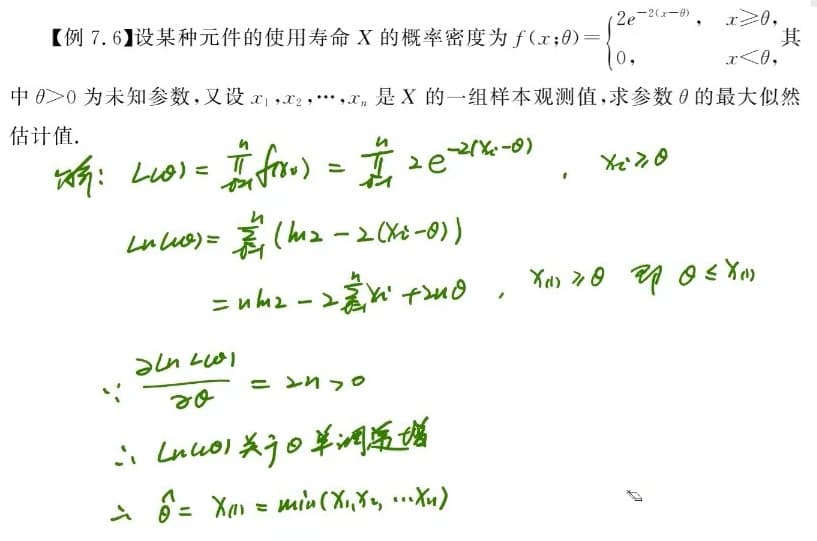 【例 7.6】设某种元件的使用寿命 X 的概率密度为 f(x;θ)={2e^{-2(x-θ)}, x≥θ, 0, x<θ, 其
中 θ>0 为未知参数,又设 x₁,x₂,…,xₙ 是 X 的一组样本观测值,求参数 θ 的最大似然
估计值.
解: L(θ) = ∏_{i=1}^{n} f(xᵢ) = ∏_{i=1}^{n} 2e^{-2(xᵢ-θ)} , xᵢ≥θ
Ln L(θ) = ∑_{i=1}^{n} (ln2 - 2(xᵢ-θ))
= nln2 - 2∑_{i=1}^{n} xᵢ + 2nθ , X₍₁₎ ≥ θ 即 θ ≤ X₍₁₎
∵ ∂Ln L(θ)/∂θ = 2n > 0
∴ Ln L(θ) 关于 θ 单调递增
∴ θ̂ = X₍₁₎ = min(X₁,X₂, …Xₙ)